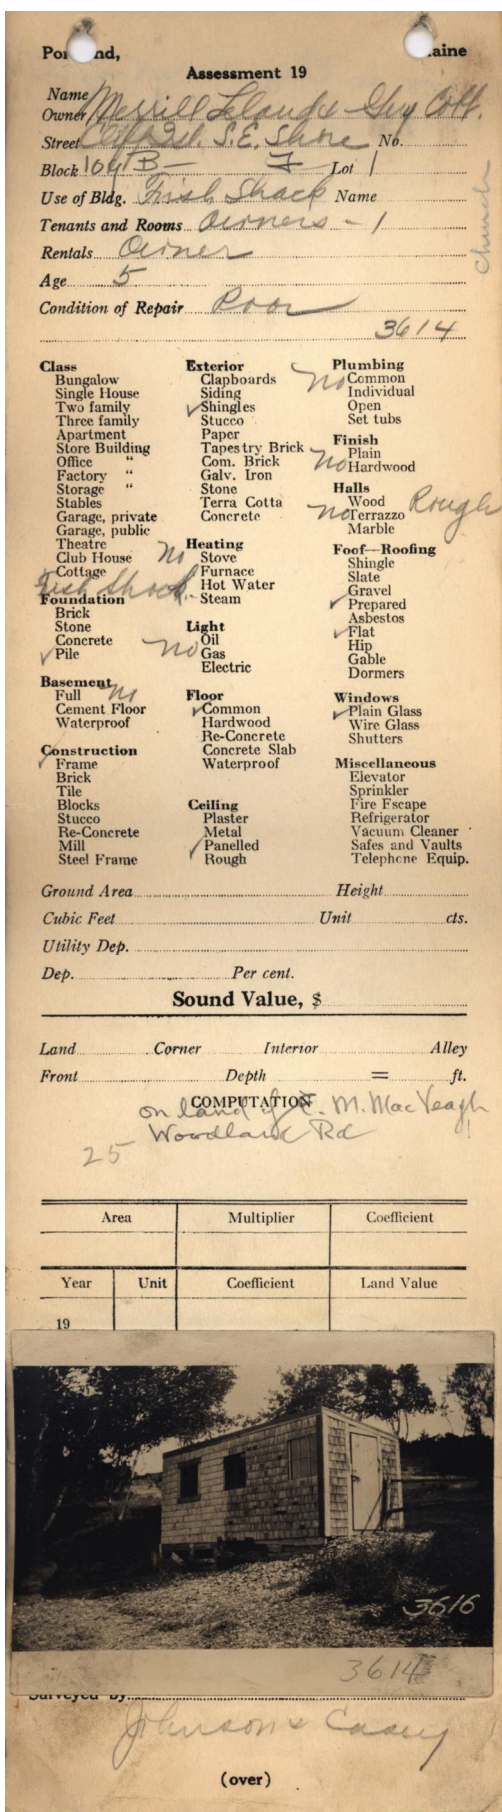 Portland, Maine
Assessment 19
Name
Owner Merrill Leland & Guy Cobb.
Street Cliff Isl. S.E. Shore No.
Block 104 B - 7 Lot 1
Use of Bldg. Fish Shack Name
Church
Tenants and Rooms Owners - 1
Rentals Owner
Age 5
Condition of Repair Poor
3614
Class
Bungalow
Single House
Two family
Three family
Apartment
Store Building
Office "
Factory "
Storage "
Stables
Garage, private
Garage, public
Theatre
Club House
Cottage
Fish Shack
Foundation
Brick
Stone
Concrete
✓ Pile
Basement
Full no
Cement Floor
Waterproof
Construction
✓ Frame
Brick
Tile
Blocks
Stucco
Re-Concrete
Mill
Steel Frame
Exterior
Clapboards
Siding
✓ Shingles
Stucco
Paper
Tapestry Brick
Com. Brick
Galv. Iron
Stone
Terra Cotta
Concrete
Heating
no Stove
Furnace
Hot Water
Steam
Light
no Oil
Gas
Electric
Floor
✓ Common
Hardwood
Re-Concrete
Concrete Slab
Waterproof
Ceiling
Plaster
Metal
✓ Panelled
Rough
Plumbing
no Common
Individual
Open
Set tubs
Finish
no Plain
Hardwood
Halls
Wood Rough
no Terrazzo
Marble
Foof—Roofing
Shingle
Slate
Gravel
✓ Prepared
Asbestos
✓ Flat
Hip
Gable
Dormers
Windows
✓ Plain Glass
Wire Glass
Shutters
Miscellaneous
Elevator
Sprinkler
Fire Escape
Refrigerator
Vacuum Cleaner
Safes and Vaults
Telephone Equip.
Ground Area Height
Cubic Feet Unit cts.
Utility Dep.
Dep. Per cent.
Sound Value, $
Land Corner Interior Alley
Front Depth = ft.
COMPUTATION
on land of E. M. MacVeagh
Woodland Rd
25
Area Multiplier Coefficient
Year Unit Coefficient Land Value
19
3616
3614
Surveyed by
Johnson & Casey
(over)